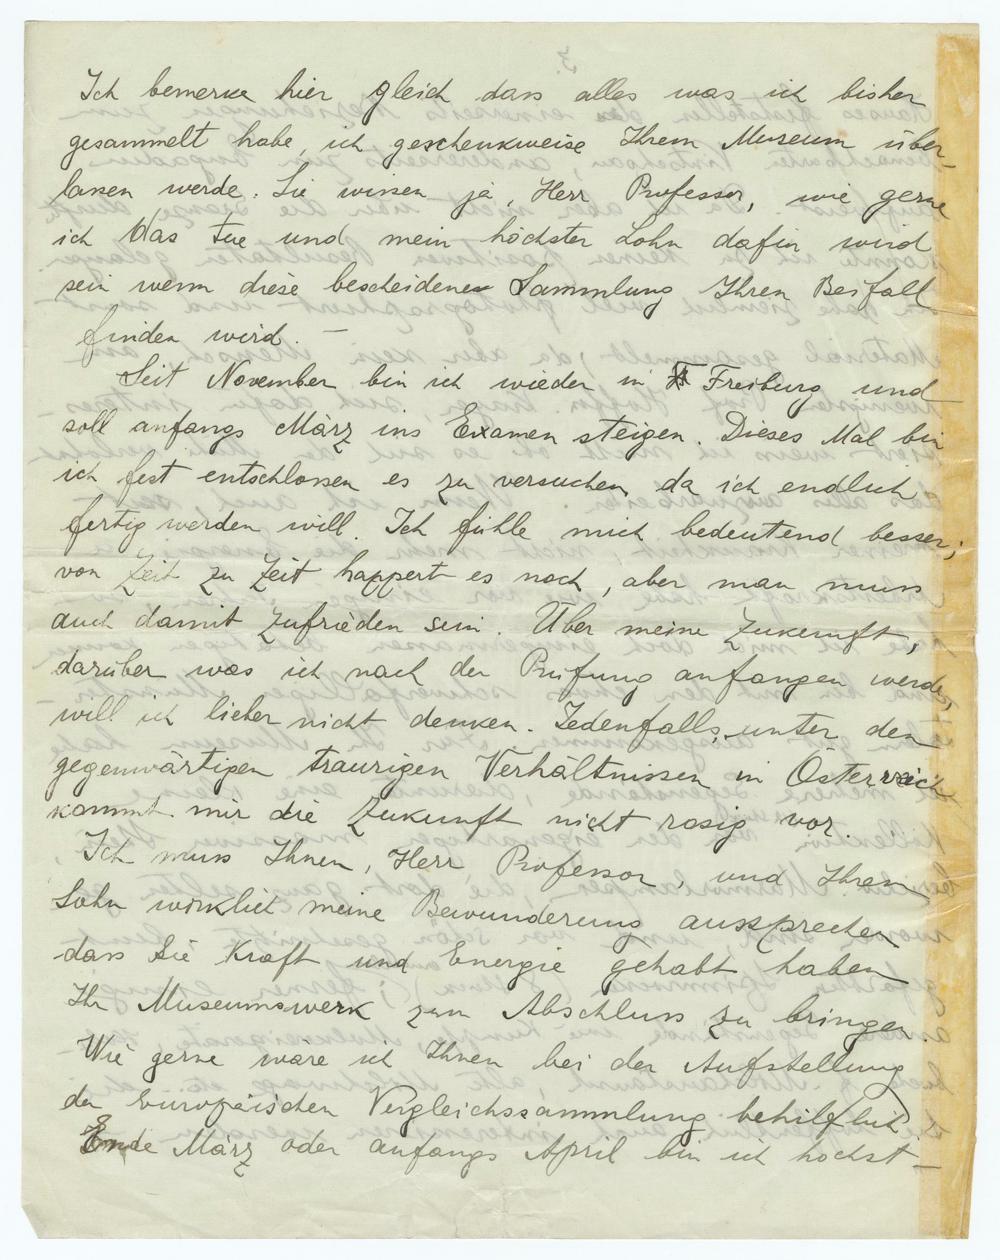 Ich bemerke hier gleich dass alles was ich bisher
gesammelt habe, ich geschenkweise Ihrem Museum über-
lassen werde. Sie wissen ja, Herr Professor, wie gerne
ich das tue und mein höchster Lohn dafür wird
sein wenn diese bescheidene Sammlung Ihren Beifall
finden wird. —
Seit November bin ich wieder in Freiburg und
soll anfangs März ins Examen steigen. Dieses Mal bin
ich fest entschlossen es zu versuchen, da ich endlich
fertig werden will. Ich fühle mich bedeutend besser;
von Zeit zu Zeit happert es noch, aber man muss
auch damit zufrieden sein. Über meine Zukunft,
darüber was ich nach der Prüfung anfangen werde,
will ich lieber nicht denken. Jedenfalls, unter den
gegenwärtigen traurigen Verhältnissen in Österreich
kommt mir die Zukunft nicht rosig vor.
Ich muss Ihnen, Herr Professor, und Ihrem
Sohn wirklich meine Bewunderung aussprechen
dass Sie Kraft und Energie gehabt haben
Ihr Museumswerk zum Abschluss zu bringen.
Wie gerne wäre ich Ihnen bei der Aufstellung
der Europäischen Vergleichssammlung behilflich.
Ende März oder anfangs April bin ich höchst-